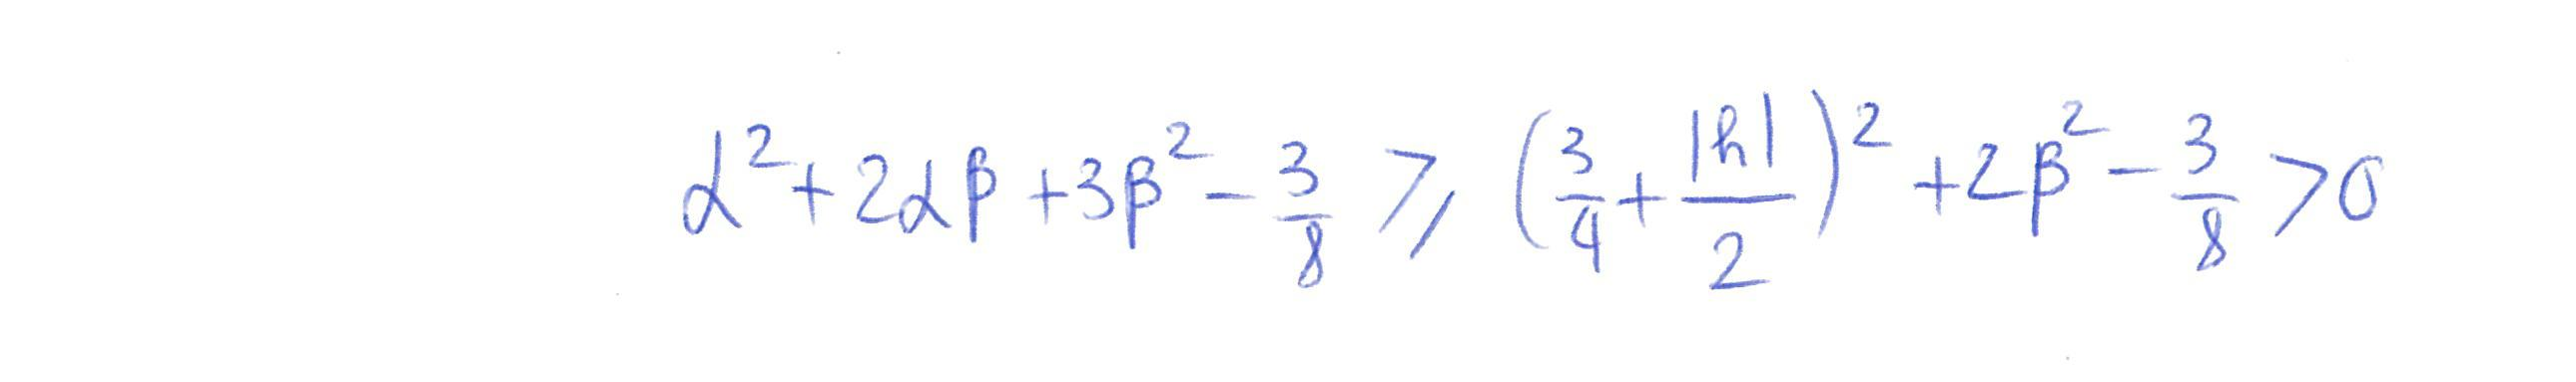 α² + 2αβ + 3β² − 3/8 ⩾ (3/4 + |h|/2)² + 2β² − 3/8 > 0